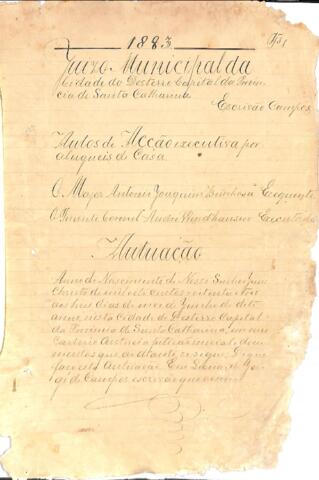 1883
Juizo Municipal da
Cidade do Desterro Capital da Provin
cia de Santa Catharina
Escrivão Campos
Autos de Acção executiva por
alugueis de Casa
O Major Antonio Joaquim Exequente
O Tenente Coronel Executado
Autuação
Anno do Nascimento de Nosso Senhor Jesus
Christo de mil oito centos e oitenta e tres
aos dias do mez de Junho do dito
anno, nesta Cidade do Desterro Capital
da Provincia de Santa Catharina, em meu
Cartorio a petição docu
mentos que ao diante se segue. Do que
faço esta Autuação. Eu
de Campos escrivão que